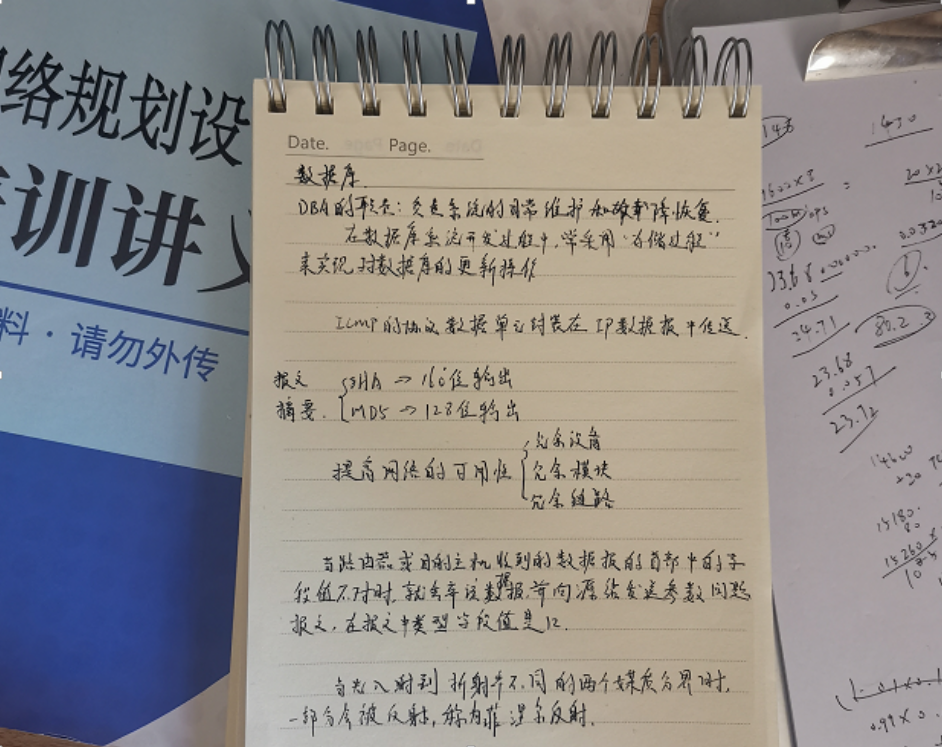 络规划设
培训讲义
料·请勿外传
Date. Page.
数据库.
DBA的职责:负责系统的日常维护和故障恢复.
在数据库系统开发过程中,常采用"存储过程"
来实现对数据库的更新操作
ICMP的协议数据单元封装在IP数据报中传送.
报文 SHA → 160位输出
摘要. MD5 → 128位输出
提高网络的可用性
冗余设备
冗余模块
冗余链路
当路由器或目的主机收到的数据报的首部中的字
段值不对时,就丢弃该数据报,并向源站发送参数问题
报文,在报文中类型字段值是12.
当光入射到折射率不同的两个媒质分界时,
一部分会被反射,称为菲涅尔反射.
1430
23.68
0.05
24.71
80.2
23.68
0.057
23.72
15180.
80
15260